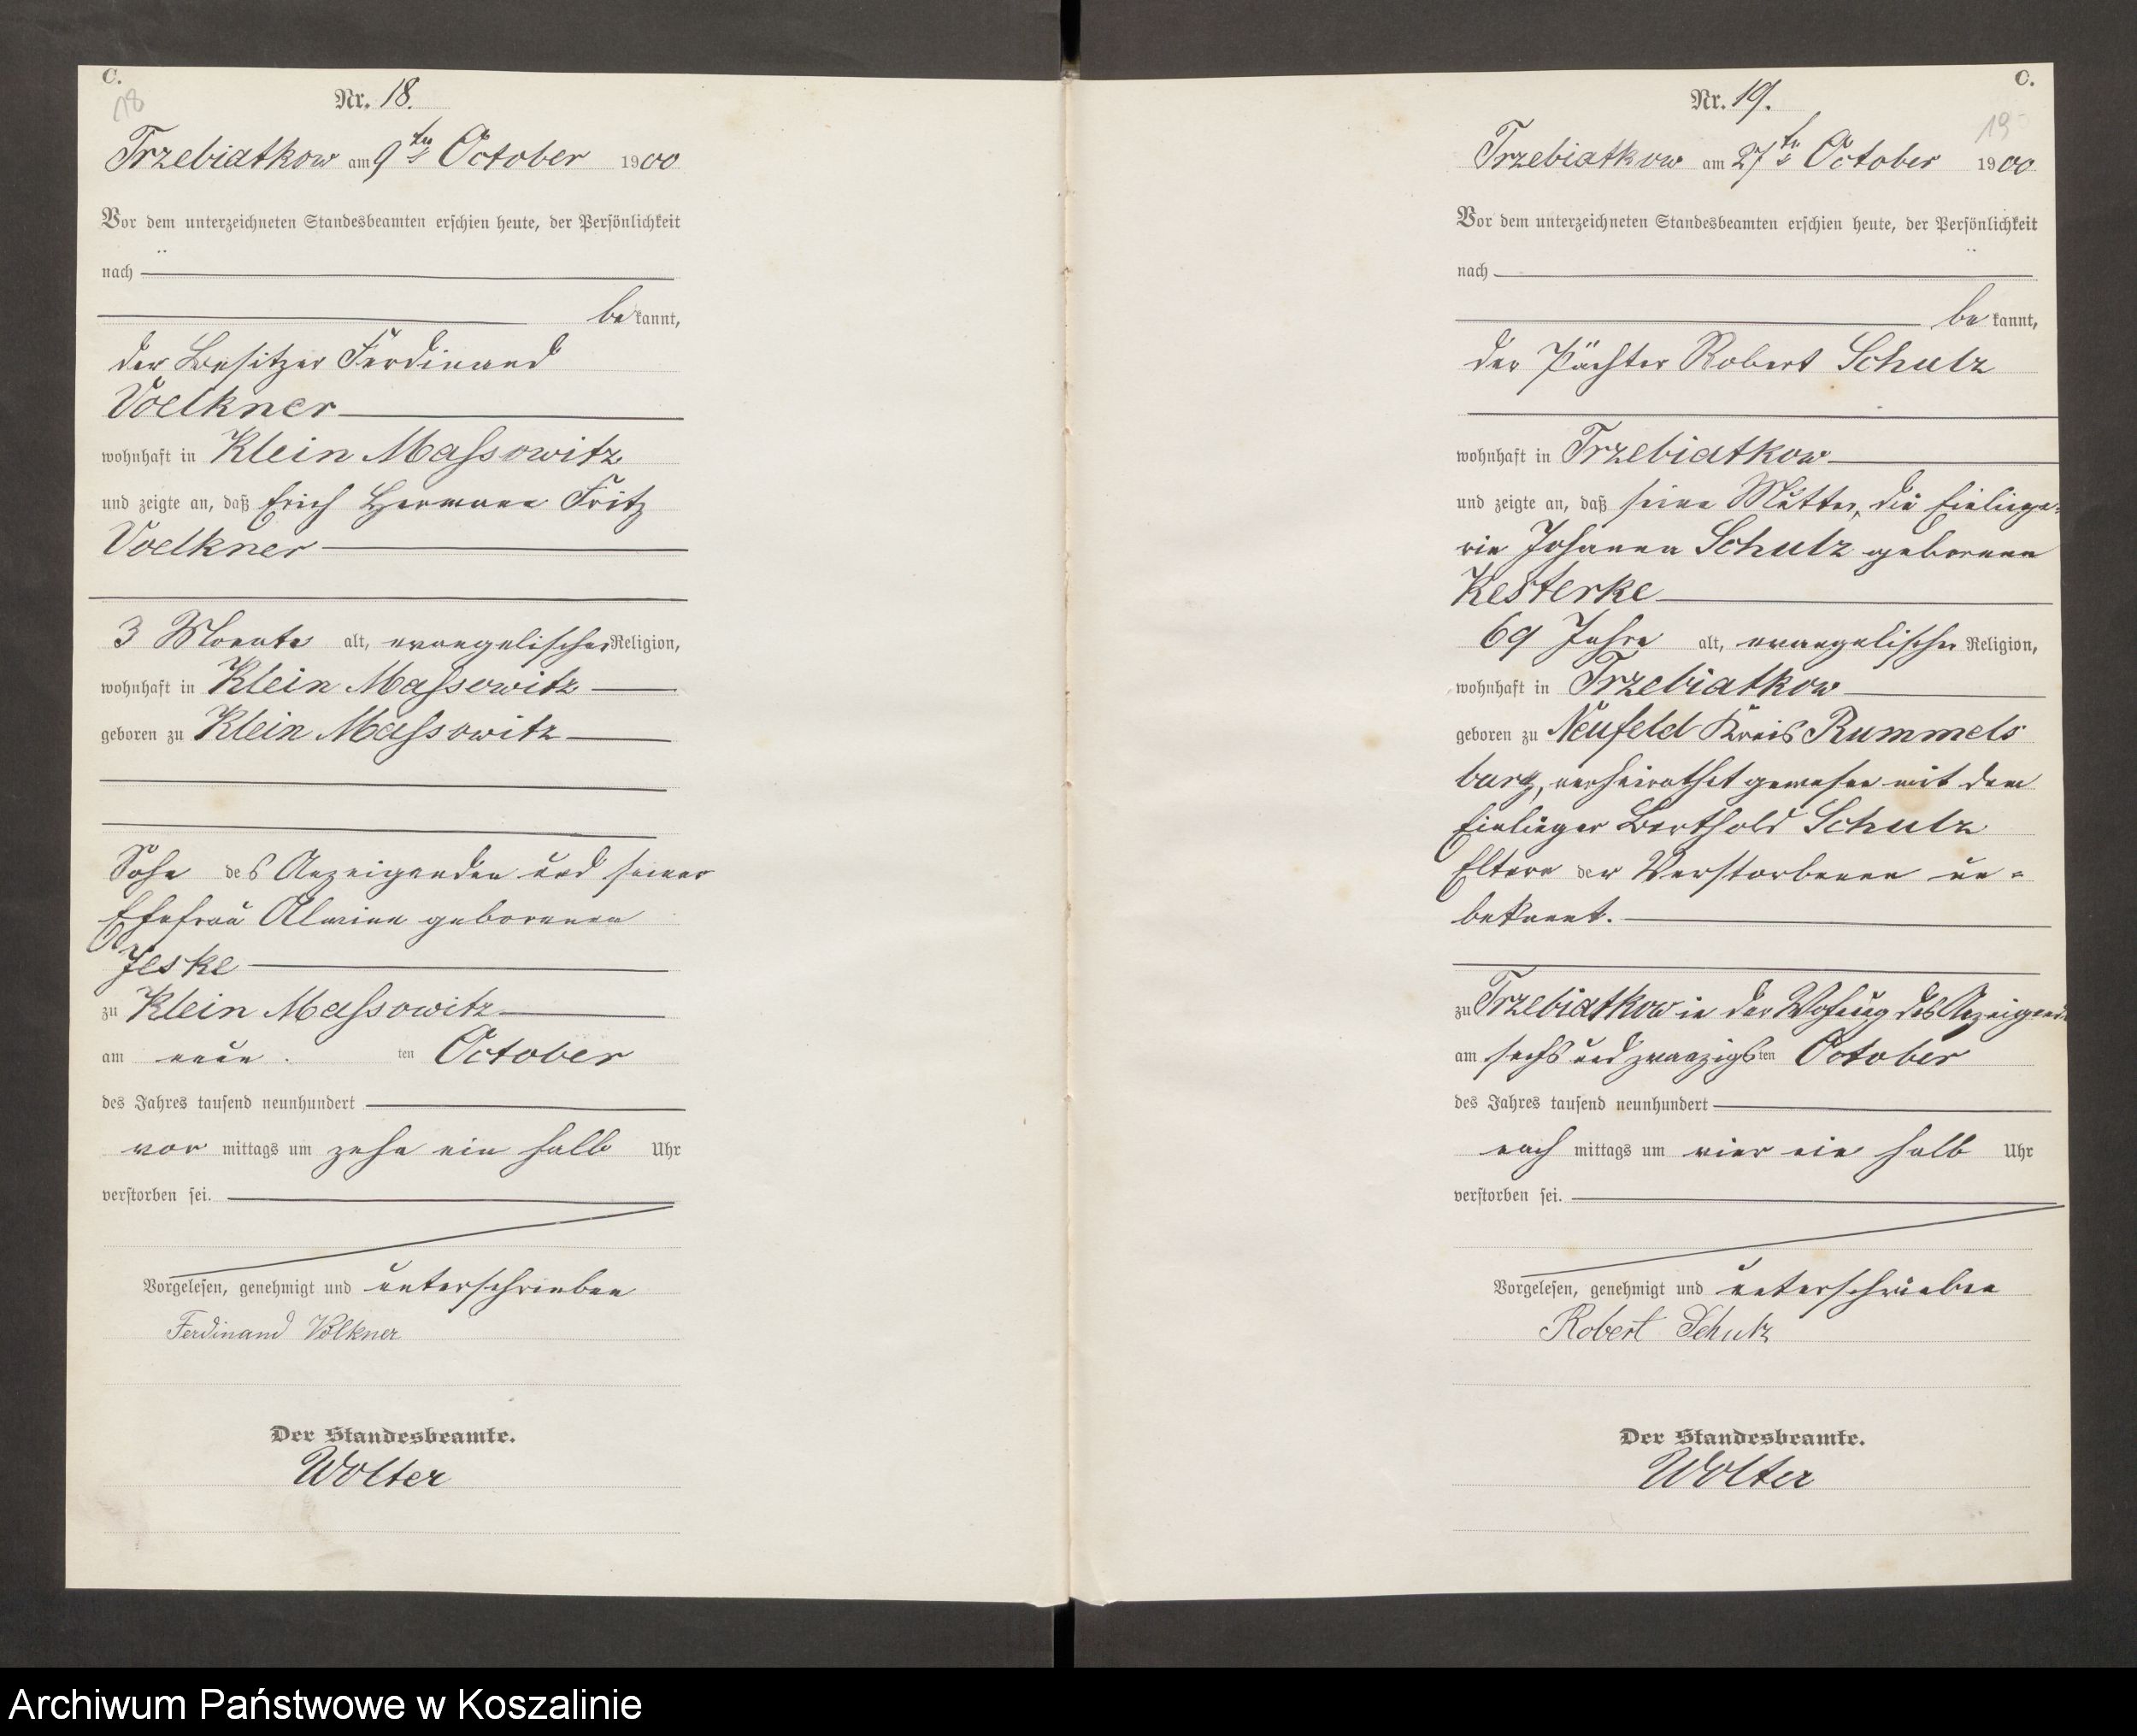 C.
18
Nr. 18.
Trzebiatkow am 9ten October 1900
Vor dem unterzeichneten Standesbeamten erschien heute, der Persönlichkeit
nach
be kannt,
der Besitzer Ferdinand
Voelkner
wohnhaft in Klein Massowitz
und zeigte an, daß Erich Hermann Fritz
Voelkner
3 Monate alt, evangelischer Religion,
wohnhaft in Klein Massowitz
geboren zu Klein Massowitz
Sohn des Anzeigenden und seiner
Ehefrau Alwine geborenen
Jeske
zu Klein Massowitz
am neun ten October
des Jahres tausend neunhundert
vor mittags um zehn ein halb Uhr
verstorben sei.
Vorgelesen, genehmigt und unterschrieben
Ferdinand Völkner
Der Standesbeamte.
Wolter
C.
19
Nr. 19.
Trzebiatkow am 27ten October 1900
Vor dem unterzeichneten Standesbeamten erschien heute, der Persönlichkeit
nach
be kannt,
der Pächter Robert Schulz
wohnhaft in Trzebiatkow
und zeigte an, daß seine Mutter, die Einliege-
rin Johanna Schulz geborene
Kesterke
69 Jahre alt, evangelischer Religion,
wohnhaft in Trzebiatkow
geboren zu Neufeld Kreis Rummels
burg, verheirathet gewesen mit dem
Einlieger Berthold Schulz
Eltern der Verstorbenen un-
bekannt.
zu Trzebiatkow in der Wohnung des Anzeigenden
am sechs und zwanzigsten October
des Jahres tausend neunhundert
nach mittags um vier ein halb Uhr
verstorben sei.
Vorgelesen, genehmigt und unterschrieben
Robert Schulz
Der Standesbeamte.
Wolter
Archiwum Państwowe w Koszalinie